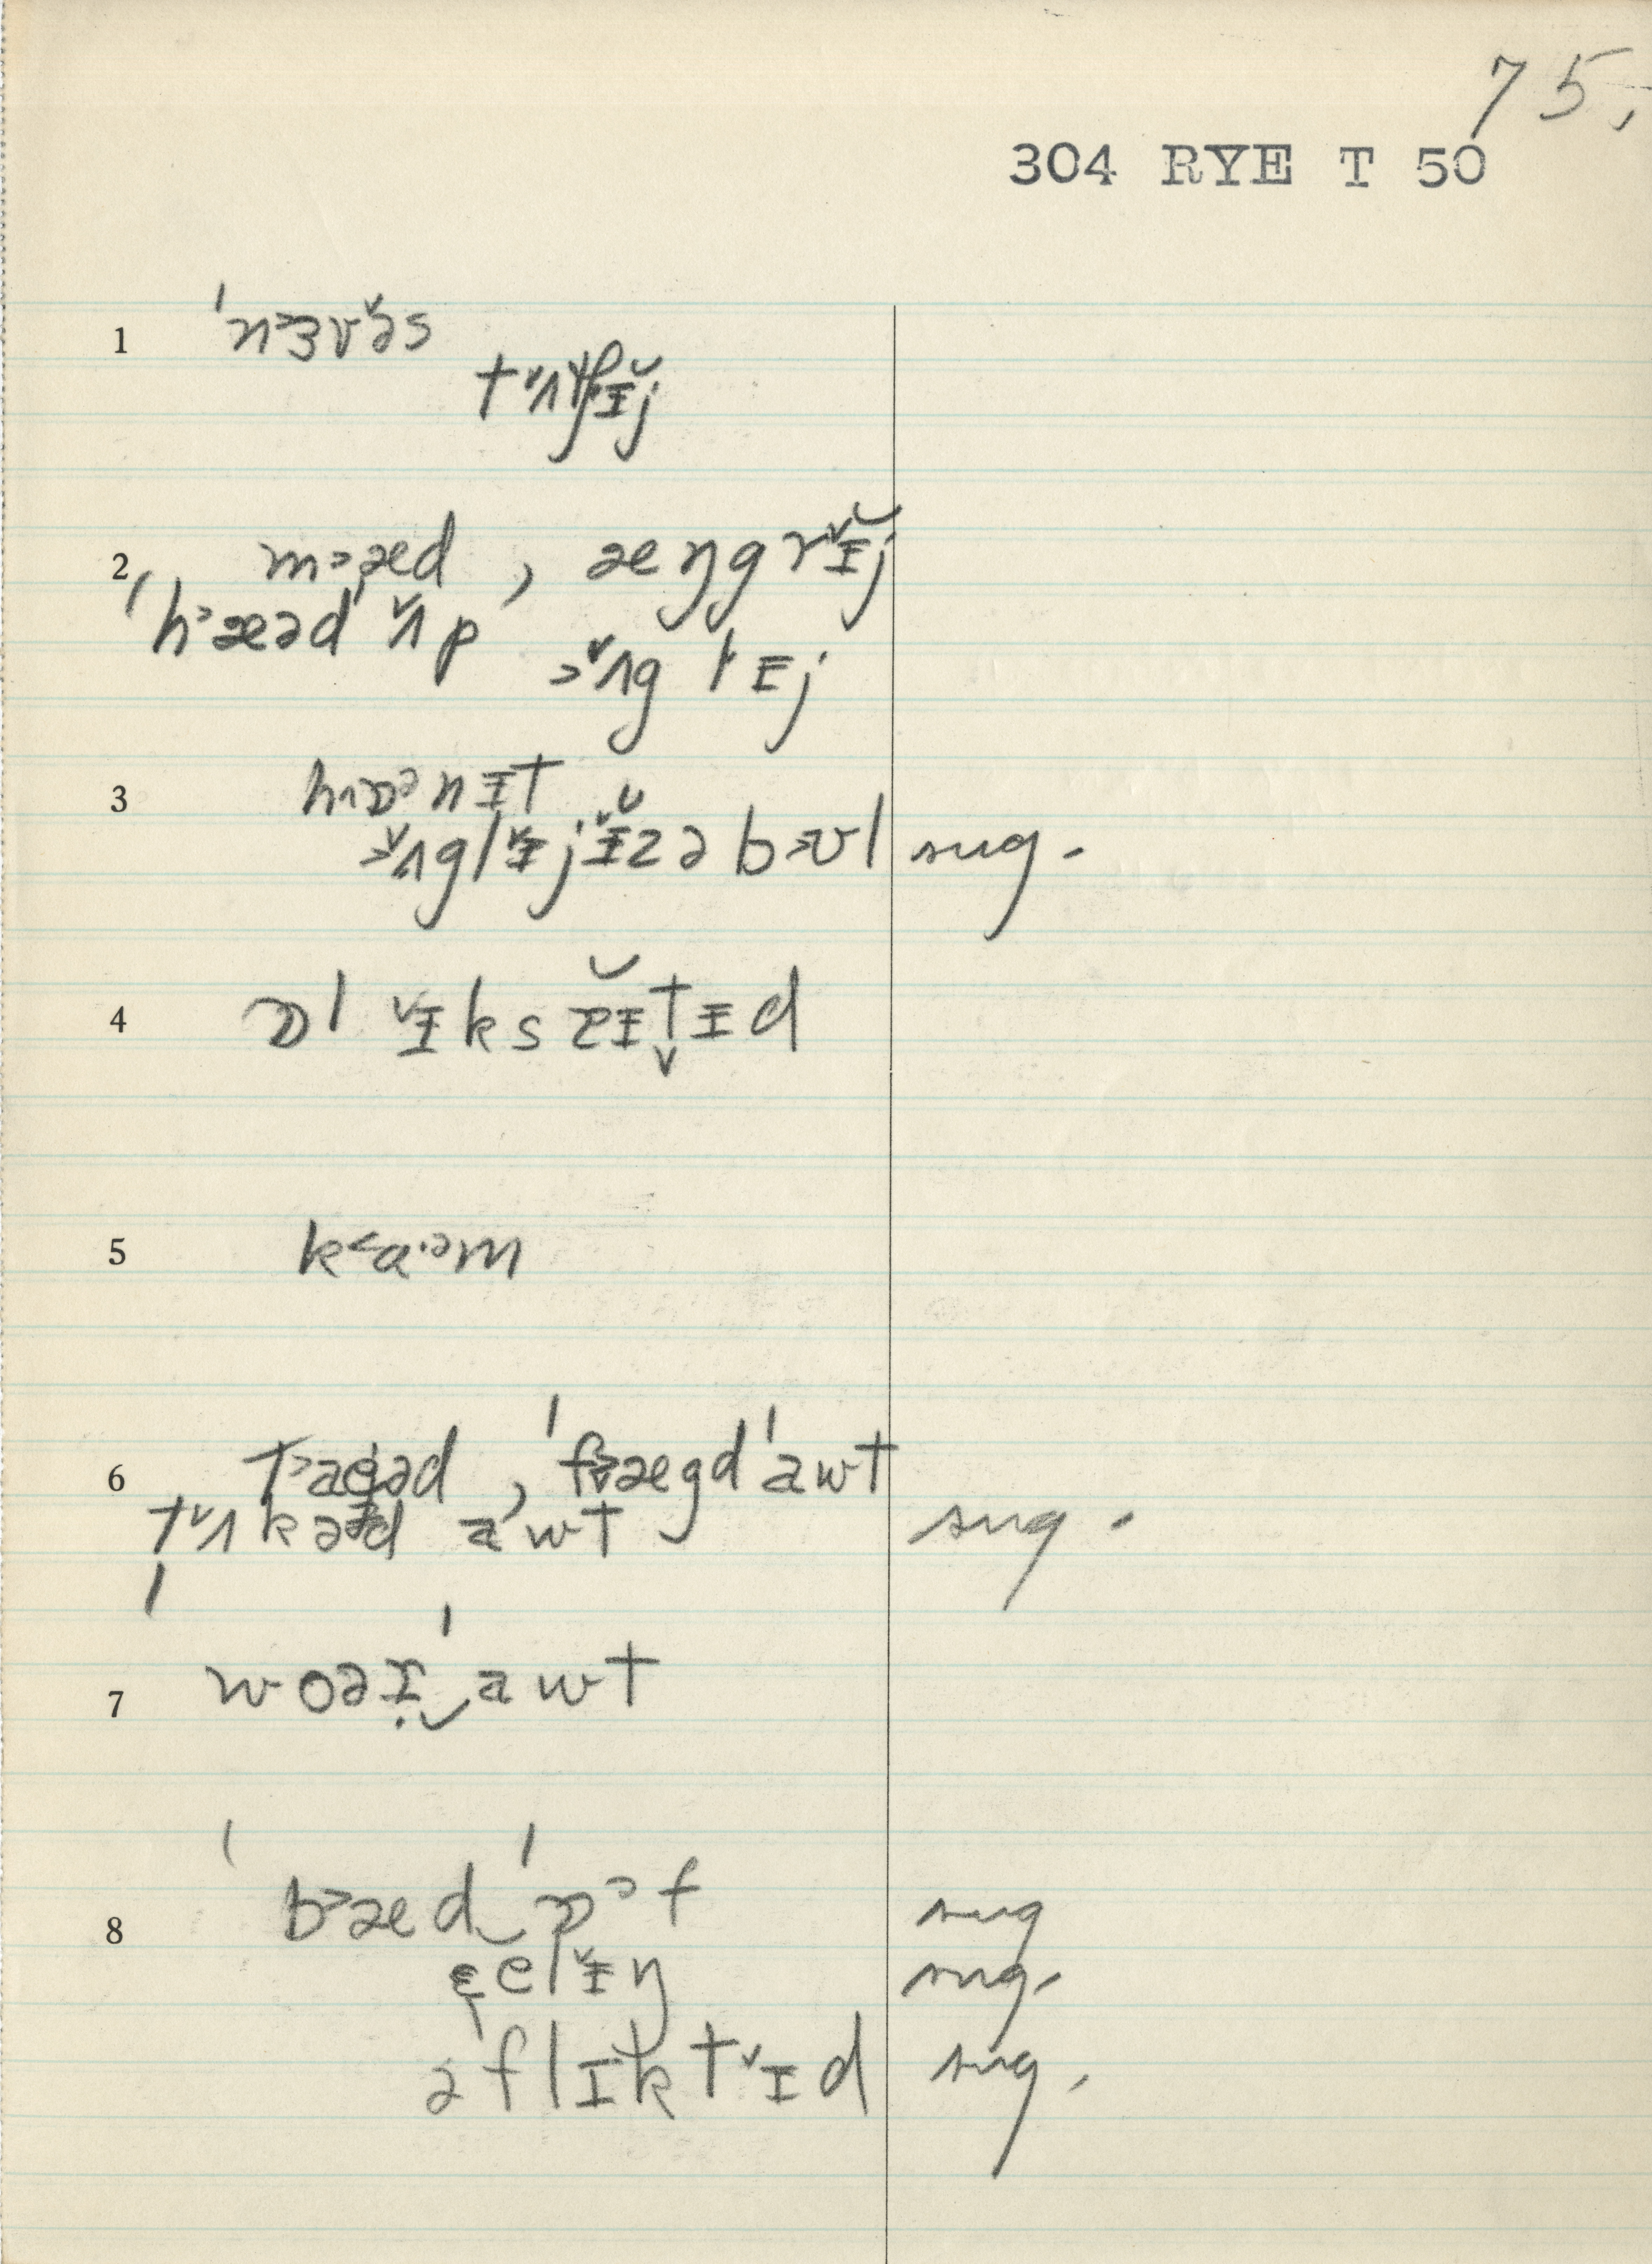 75.
304 RYE T 50
1 ˈn˃ɜv˅əs
t˅ʌtʃɪ̆j
2 m˃æd, æŋgr˅ɪ̆j
ˈh˃æəd ˈ˅ʌp
˃˅ʌg l ɪj
3 hɒᵊnɪt
˃˅ʌgl˅ɪj˅ɪ̆zə b˃ʊl sug.
4 ɒl ˅ɪksɪt̬ɪd
5 k˂ɑ·ᵊm
6 ˈf˃ægdˈawt
t˅ʌkəd awt sug.
7 woəɹˈawt
8 ˈb˃ædˈɒᵊf sug
el˅ɪŋ sug.
əflɪkt˅ɪd sug.